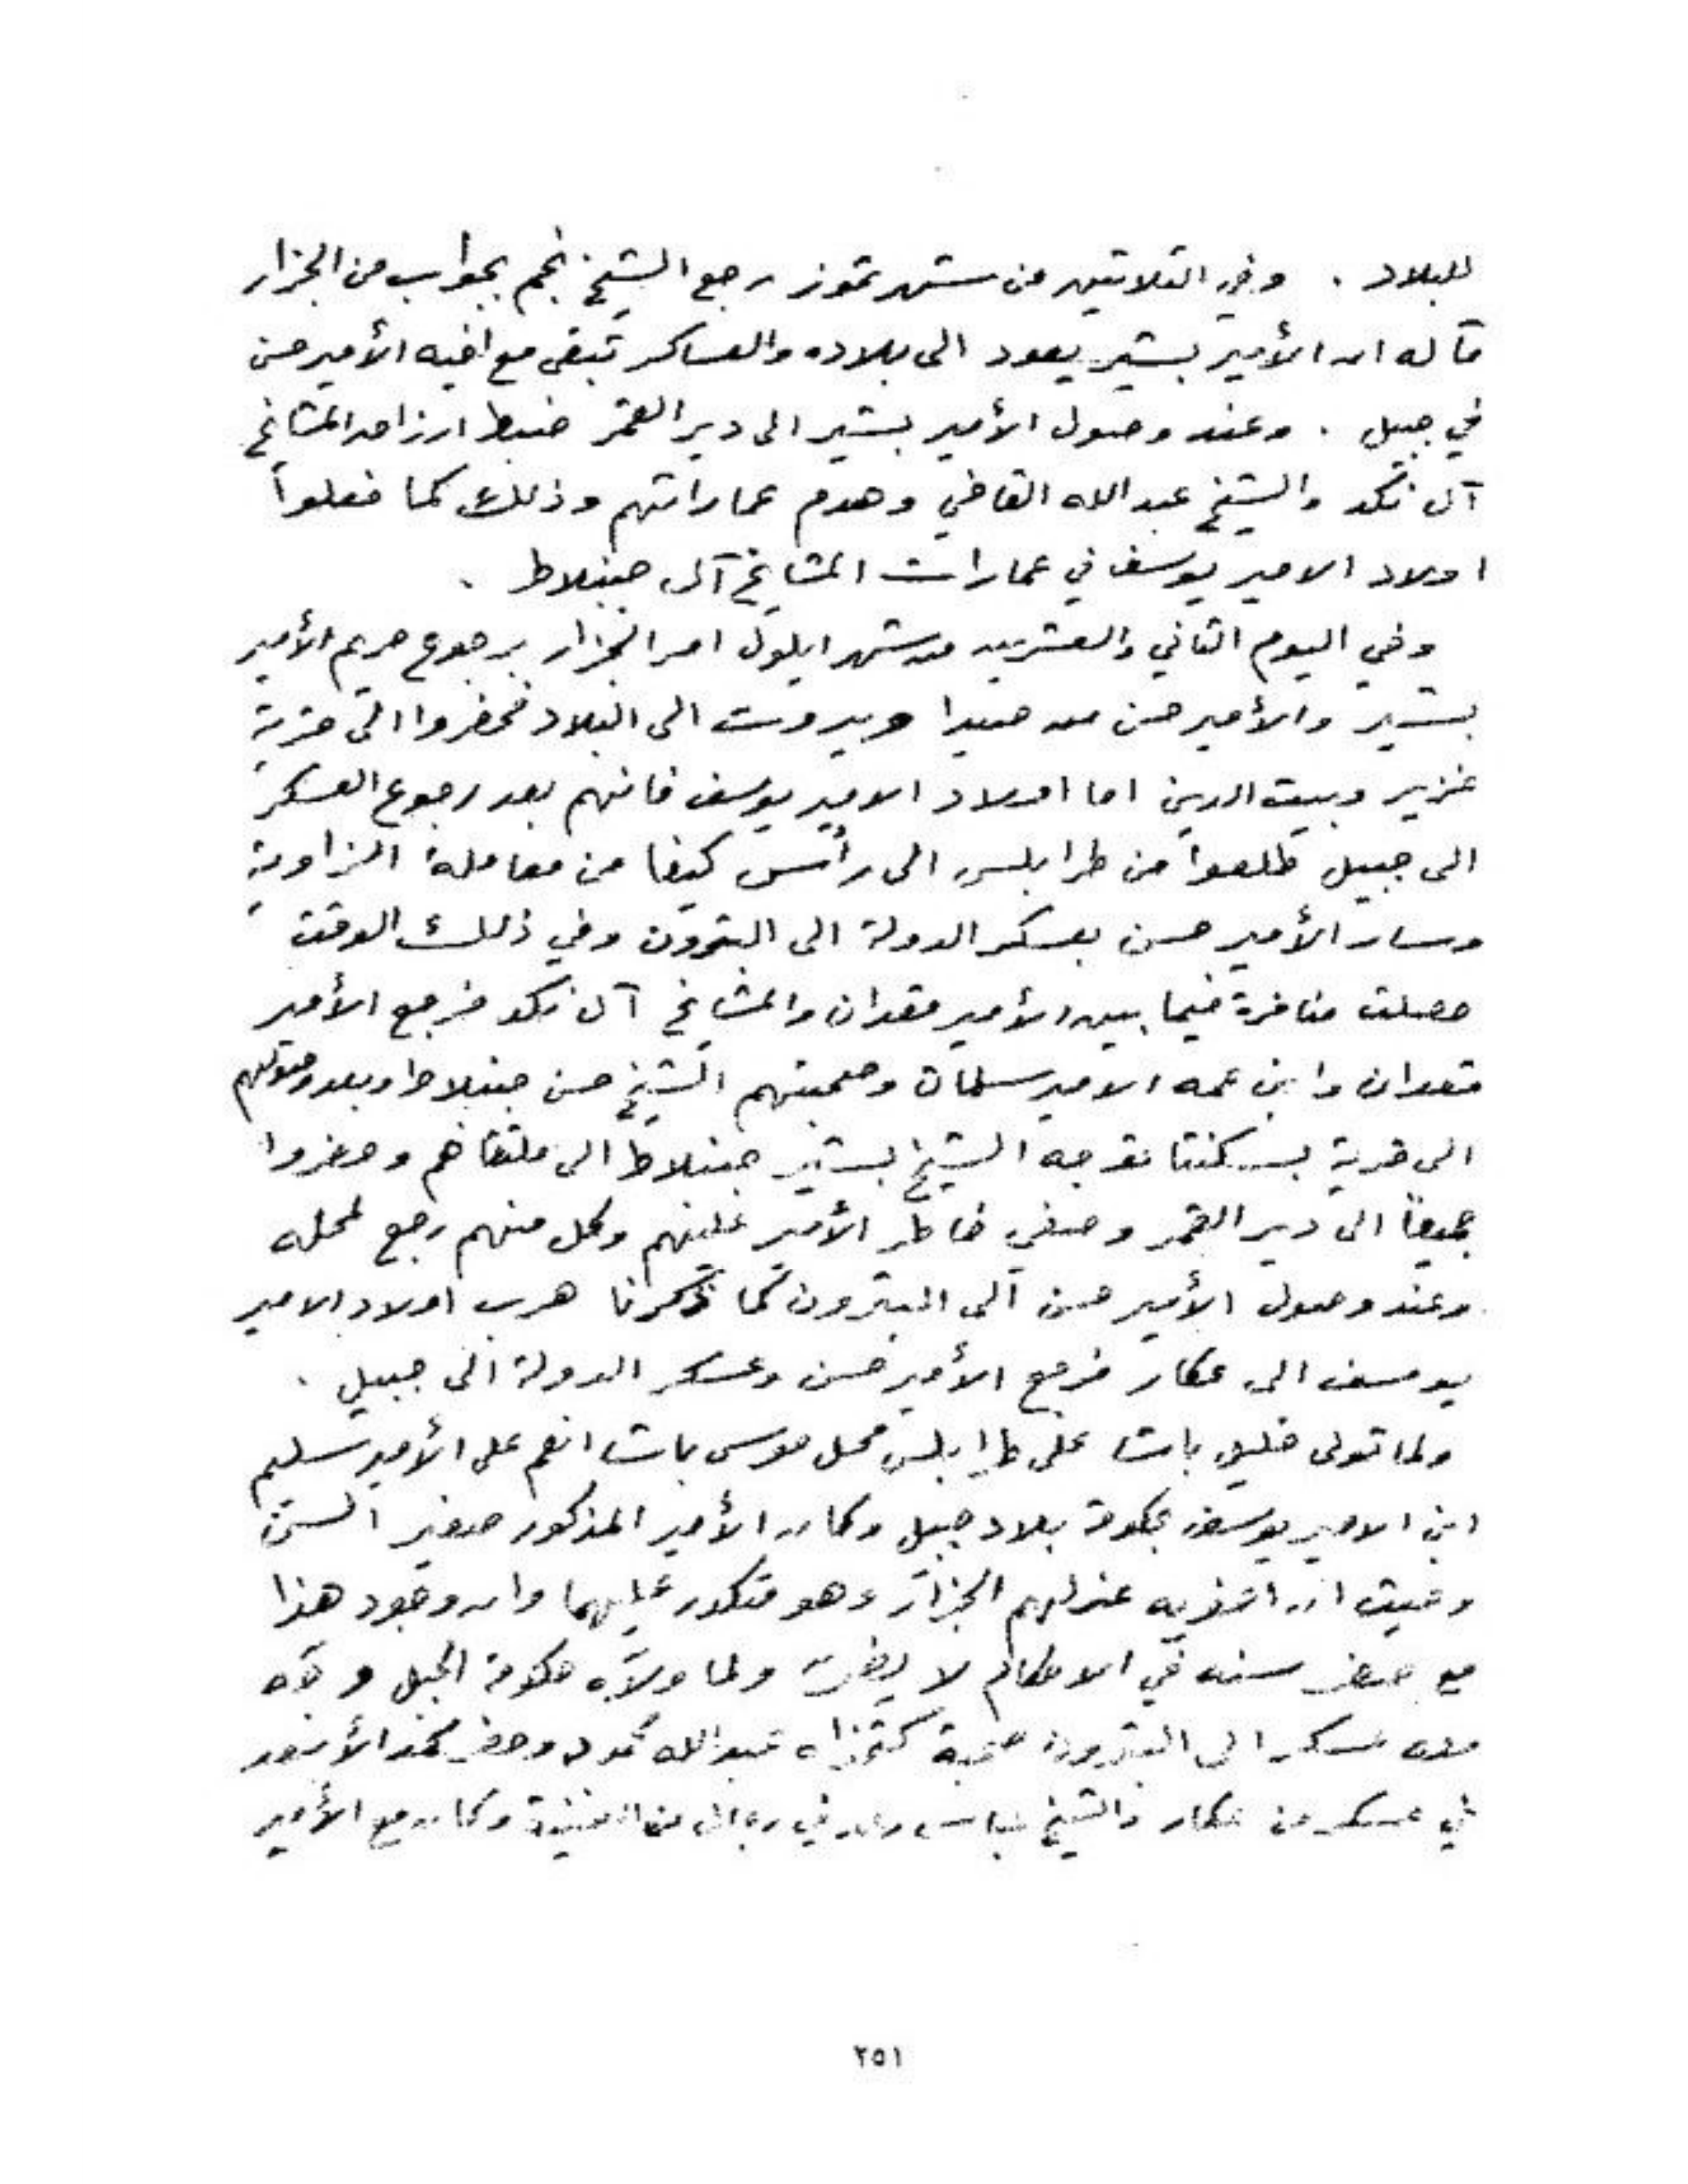 للبلاد . وفي الثلاثين من شهر تموز رجع الشيخ نجم بجواب من الجزار
مآله ان الأمير بشير يعود الى بلاده والعساكر تبقى مع اخيه الأمير حسن
في جبيل . وعند وصول الأمير بشير الى دير القمر ضبط ارزاق المشايخ
آل نكد والشيخ عبدالله القاضي وهدم عماراتهم وذلك كما فعلوا
اولاد الامير يوسف في عمارات المشايخ آل جنبلاط .
وفي اليوم الثاني والعشرين من شهر ايلول امر الجزار برجوع حريم الأمير
بشير والأمير حسن من صيدا وبيروت الى البلاد فحضروا الى قرية
غزير وبيت الدين اما اولاد الامير يوسف فانهم بعد رجوع العسكر
الى جبيل طلعوا من طرابلس الى رأس كيفا من معاملة الزاوية
وسار الأمير حسن بعسكر الدولة الى البترون وفي ذلك الوقت
حصلت منافرة فيما بين الأمير قعدان والمشايخ آل نكد فرجع الأمير
قعدان وابن عمه الامير سلمان وصحبتهم الشيخ حسن جنبلاط وبعد وصولهم
الى قرية بسكنتا توجه الشيخ بشير جنبلاط الى ملتقاهم وحضروا
جميعاً الى دير القمر وصفي خاطر الأمير عليهم وكل منهم رجع لمحله
وعند وصول الأمير حسن الى البترون كما ذكرنا هرب اولاد الامير
يوسف الى عكار فرجع الأمير حسن وعسكر الدولة الى جبيل .
ولما تولى خليل باشا على طرابلس محل موسى باشا انعم على الأمير سليم
ابن الامير يوسف بحكومة بلاد جبيل وكان الأمير المذكور صغير السن
وحيث ان اخويه عزلهم الجزار وهو متكدر عليهما وان وجود هذا
مع صغر سنه في الاحكام لا يضر ولما ولاّه حكومة الجبل
عسكر الى البترون صحبة عبدالله وحضر الأسعد
في عسكر من عكار والشيخ في رجال من الضنية وكان مع الأمير
٢٥١